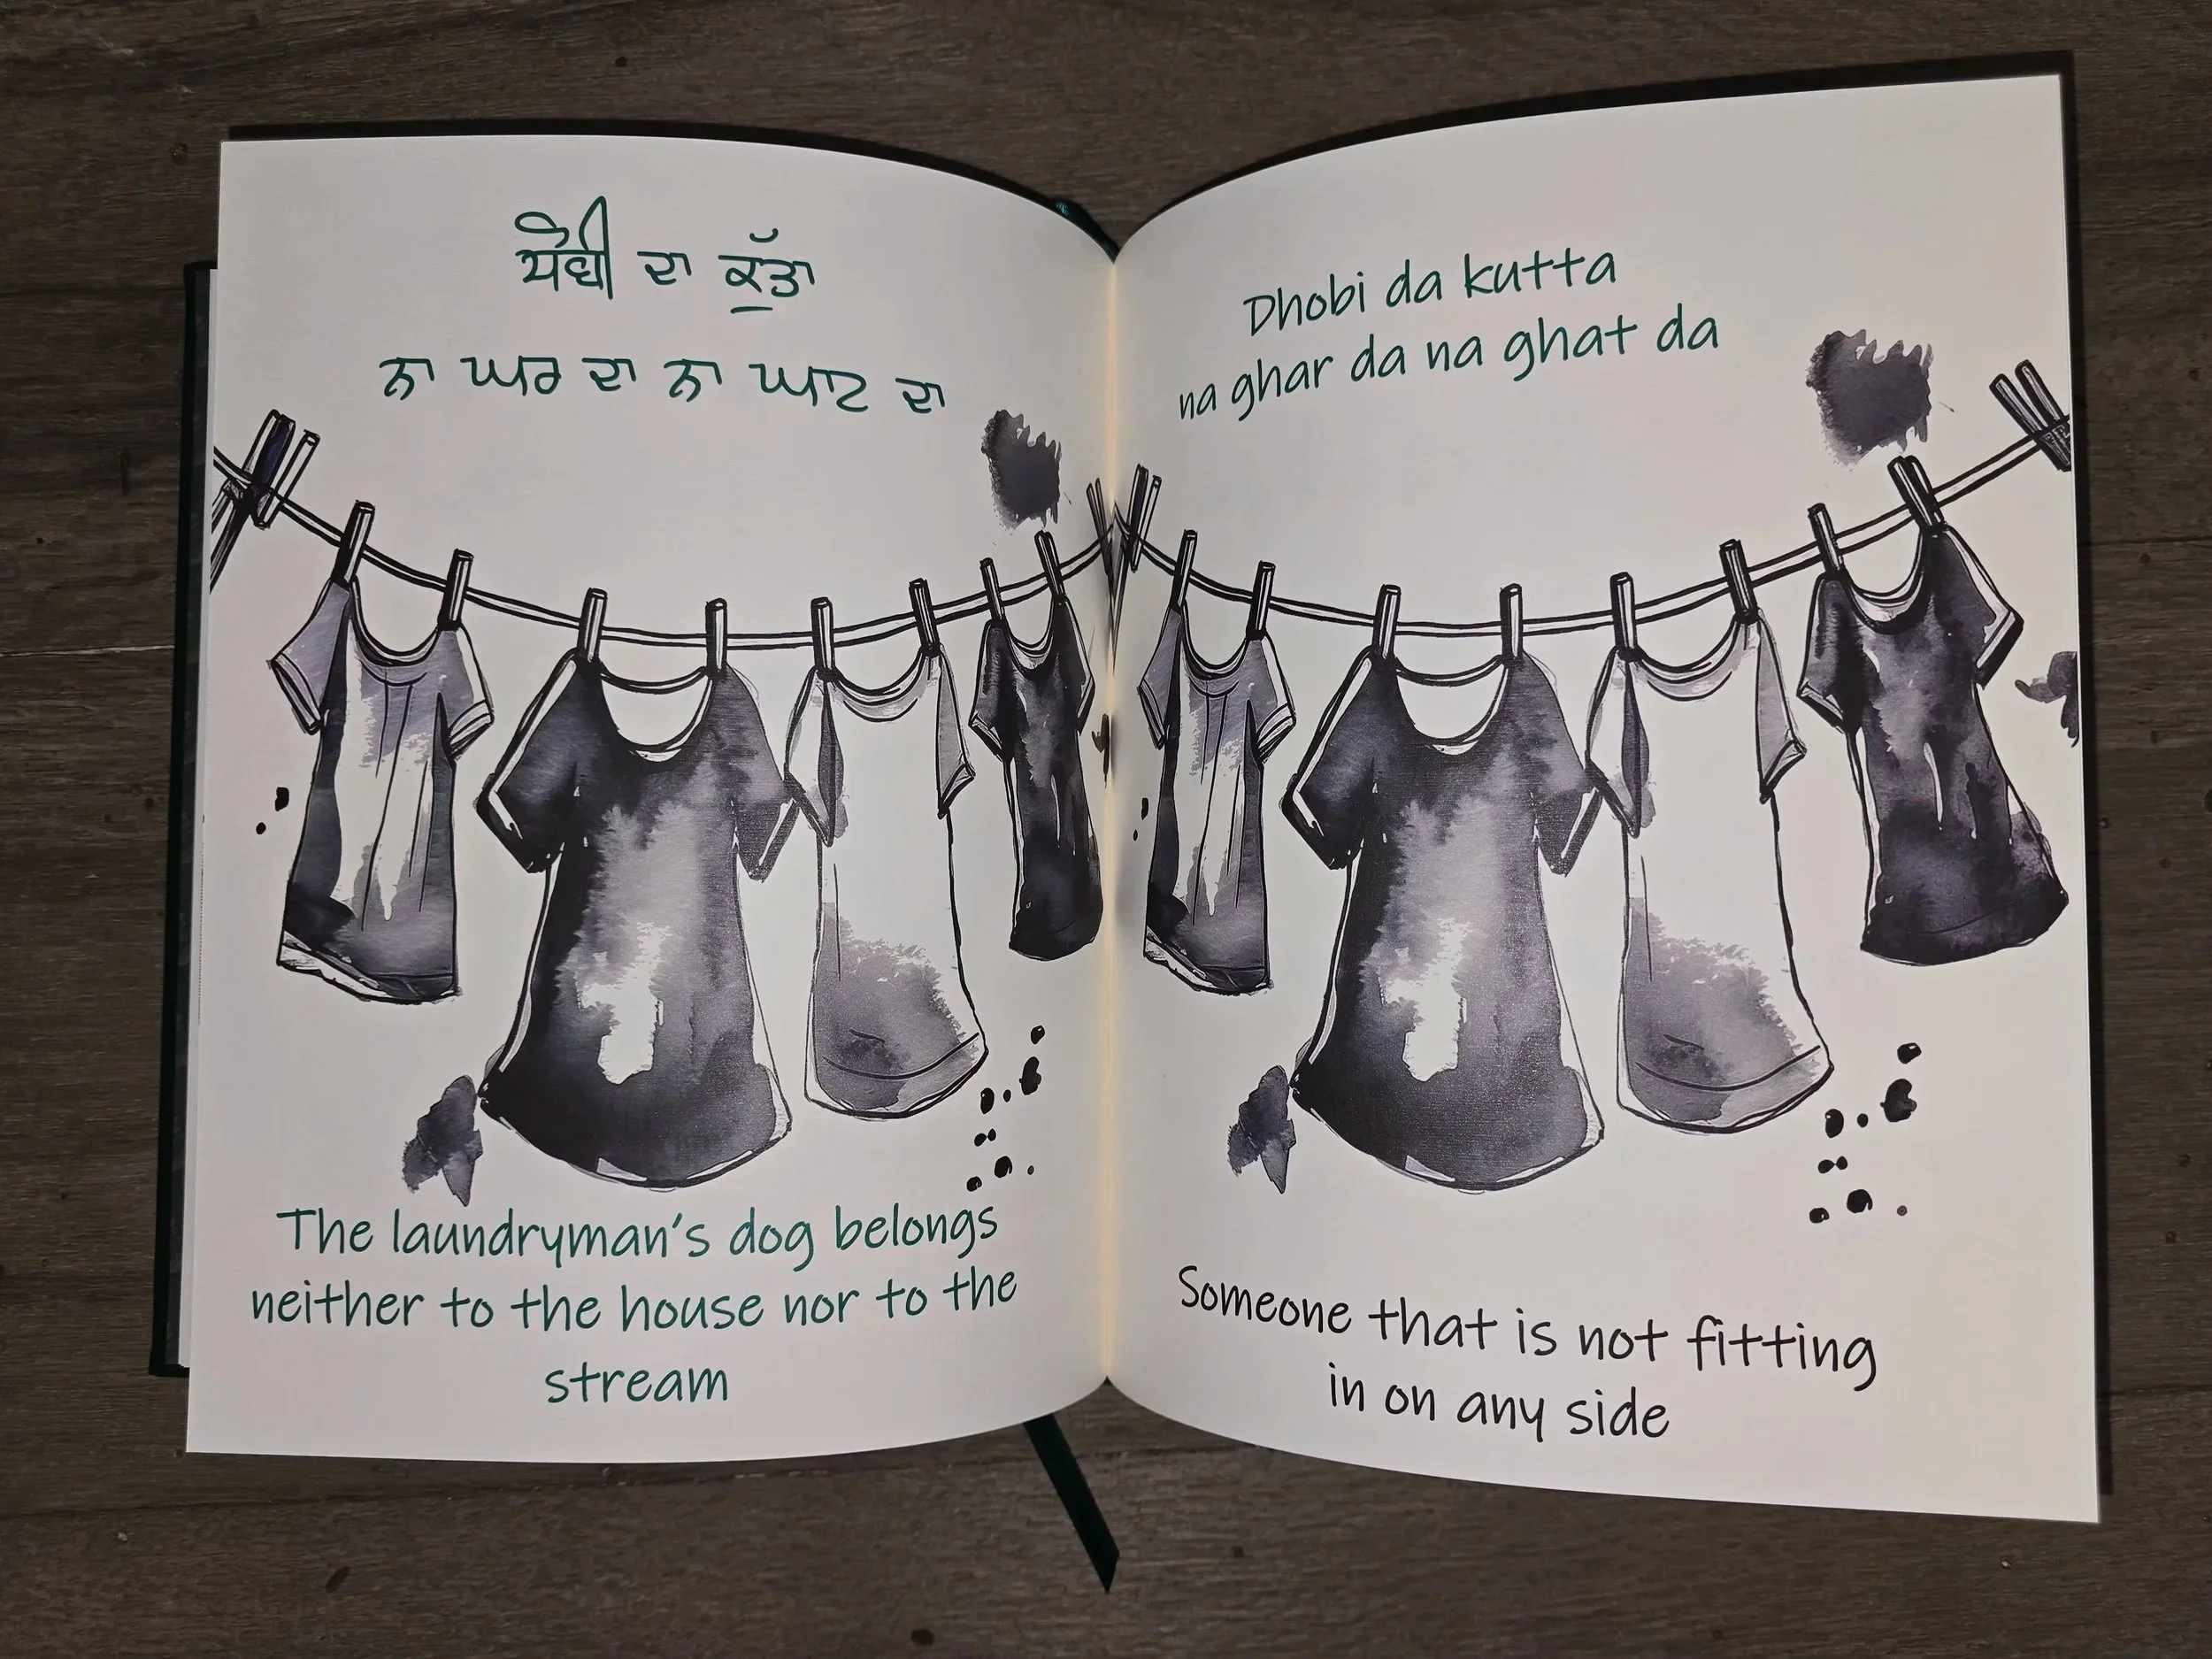 ਧੋਬੀ ਦਾ ਕੁੱਤਾ
ਨਾ ਘਰ ਦਾ ਨਾ ਘਾਟ ਦਾ
The laundryman's dog belongs
neither to the house nor to the
stream
Dhobi da kutta
na ghar da na ghat da
Someone that is not fitting
in on any side